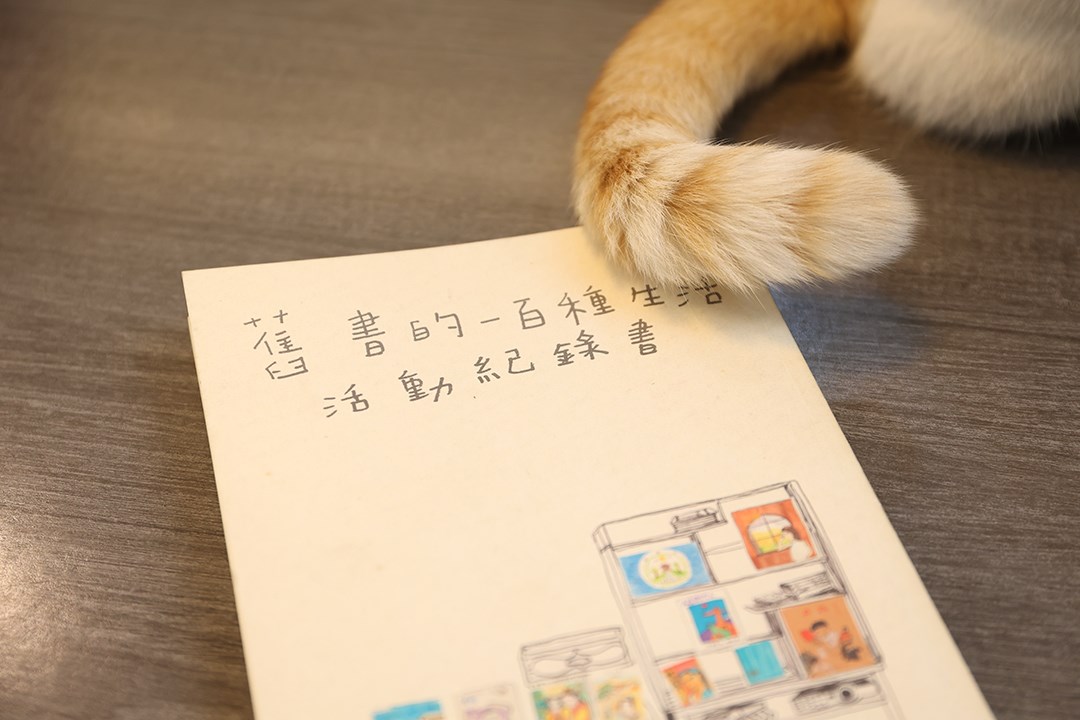 舊書的一百種生活
活動紀錄書